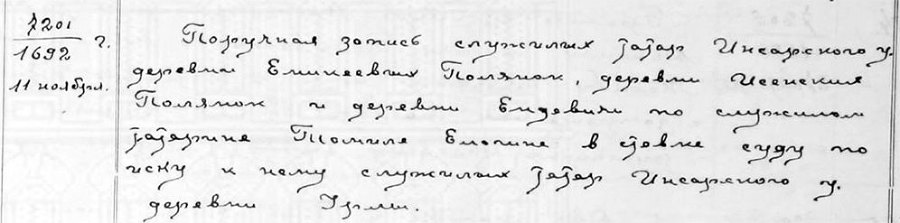 7201
1692 г.
11 ноября.
Поручная запись служилых татар Инсарского у.
деревни Еникеевых Полянок, деревни Исенския
Полянок и деревни Ендевичи по служилом
татарине Томиле Елокине в ставке суду по
иску к нему служилых татар Инсарского у.
деревни Урми.